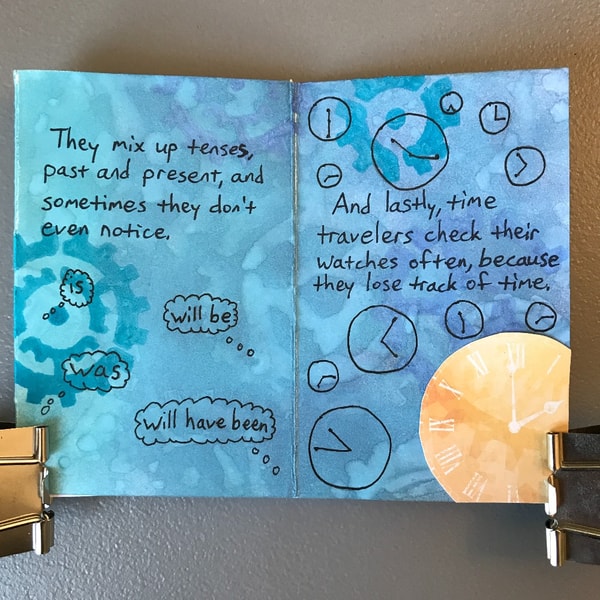 They mix up tenses,
past and present, and
sometimes they don't
even notice.
is
will be
was
will have been
And lastly, time
travelers check their
watches often, because
they lose track of time.